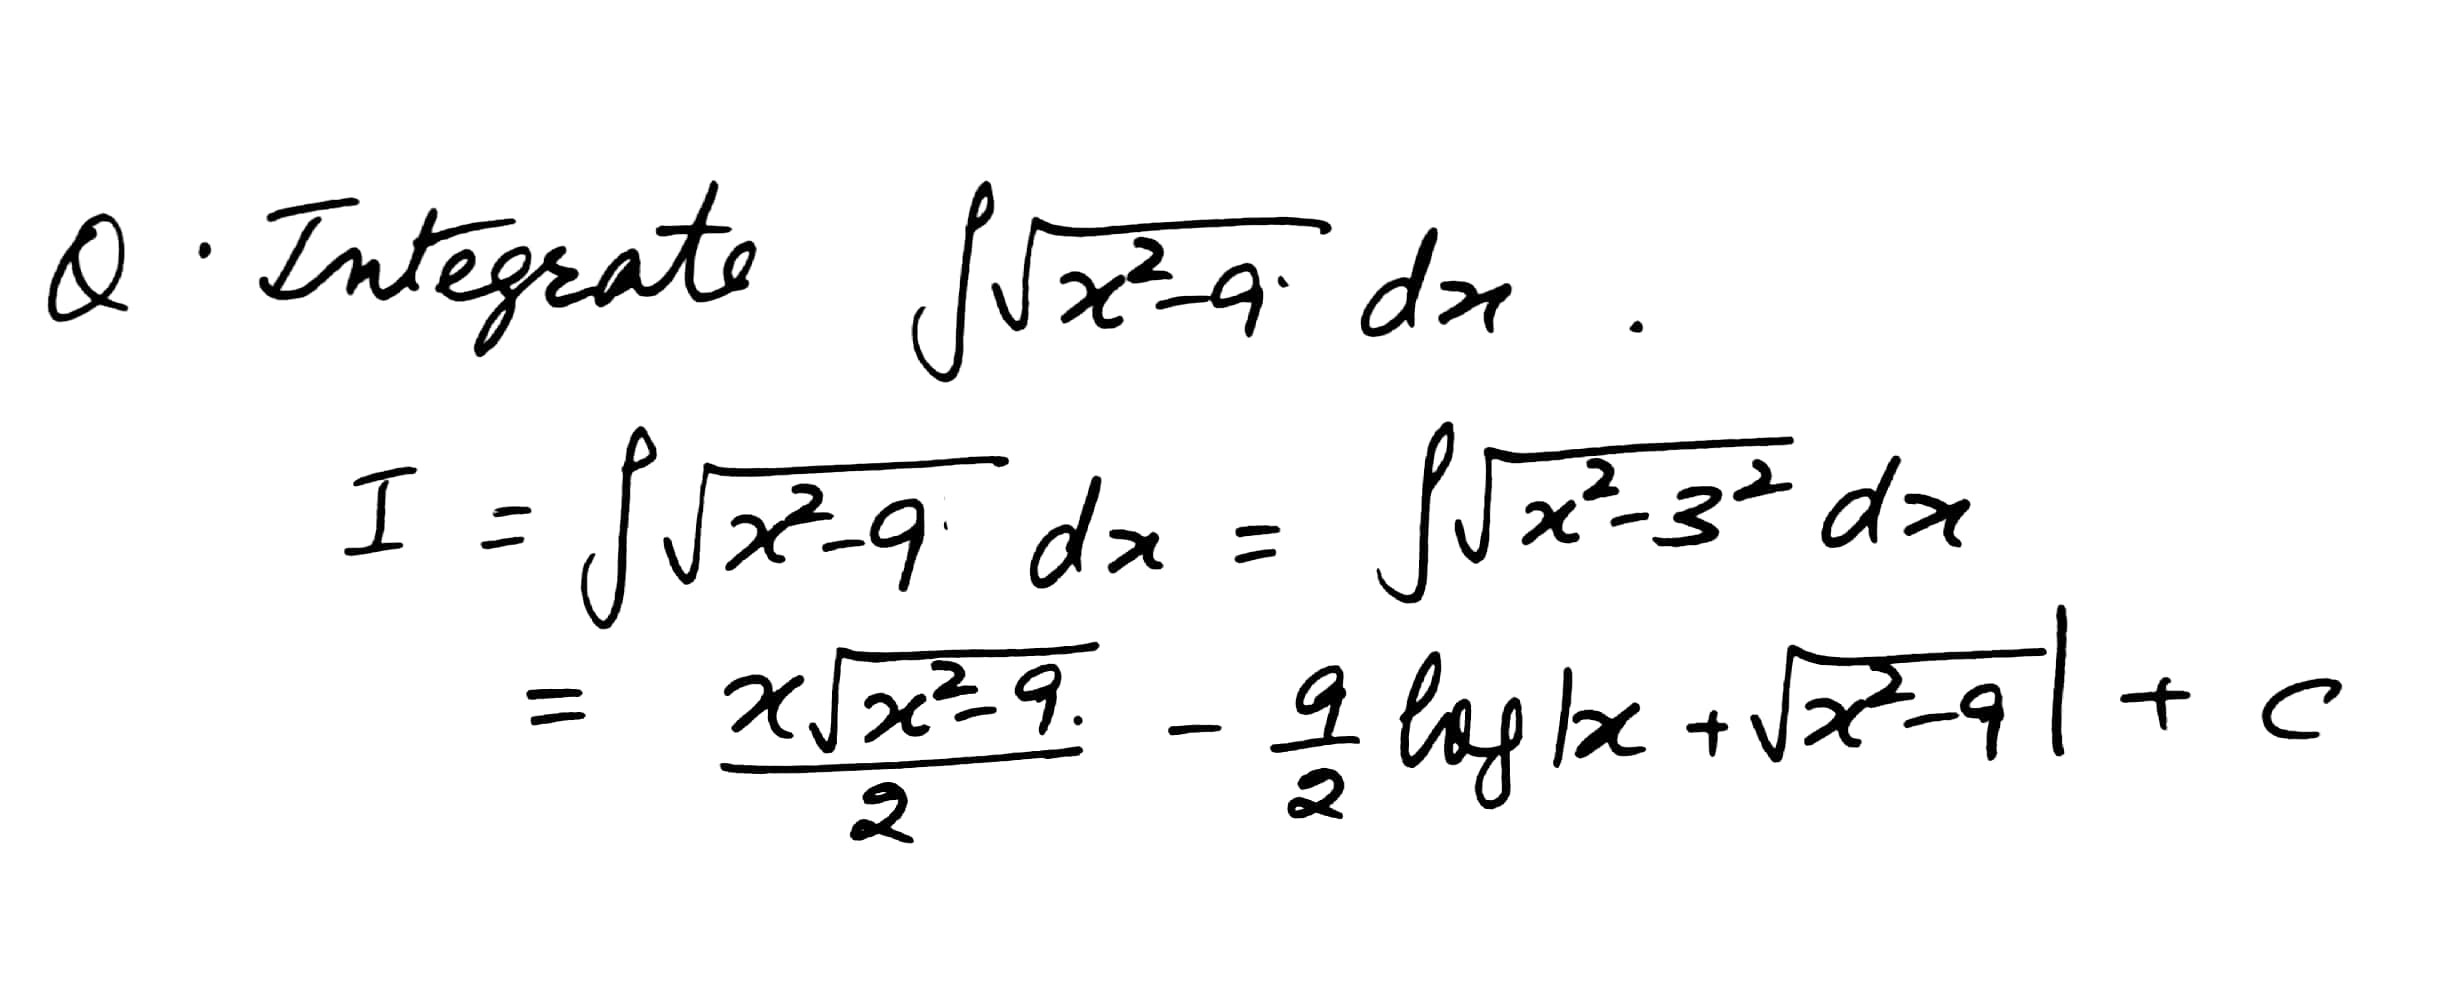 Q. Integrate ∫√(x²-9) dx.
I = ∫√(x²-9) dx = ∫√(x²-3²) dx
= x√(x²-9)/2 - 9/2 log|x + √(x²-9)| + C